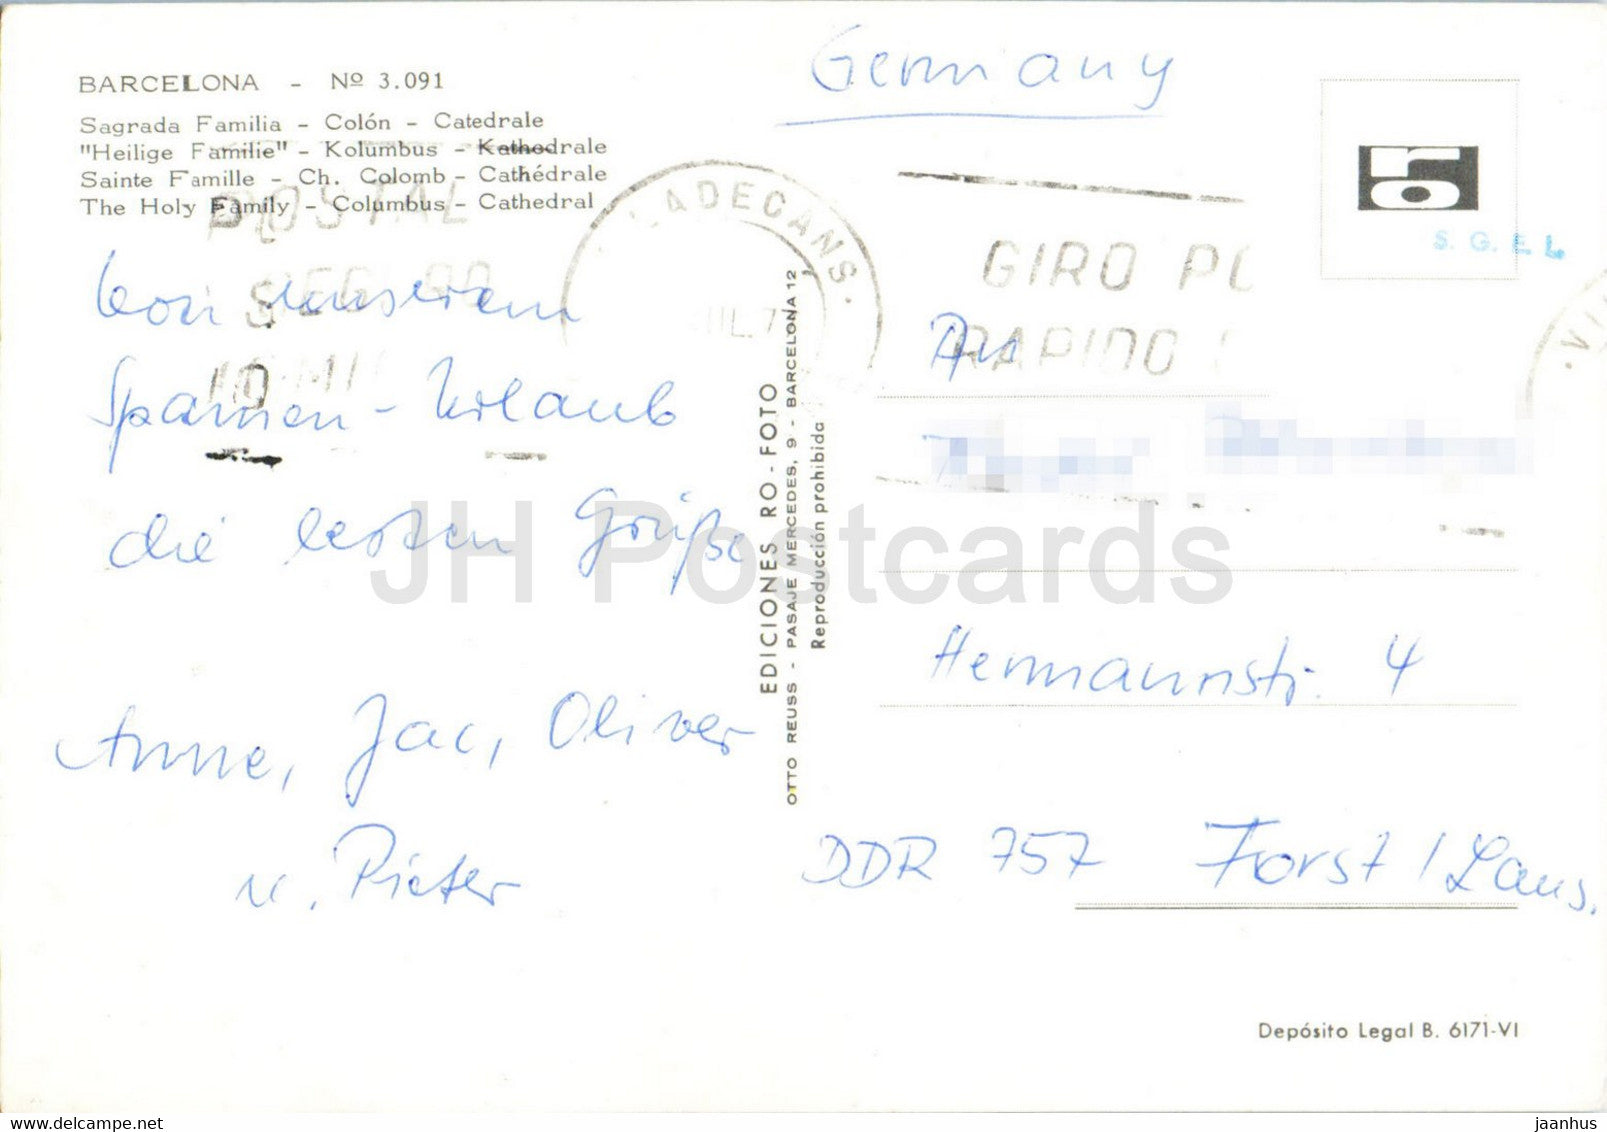 BARCELONA - Nº 3.091
Sagrada Familia - Colón - Catedrale
"Heilige Familie" - Kolumbus - Kathedrale
Sainte Famille - Ch. Colomb - Cathédrale
The Holy Family - Columbus - Cathedral
POSTAL
ADECANS.
GIRO
RAPIDO
Germany
ro
S. G. E. L.
Von unserem
Spanien-Urlaub
die besten Grüße
Anne, Jac, Oliver
u. Pieter
EDICIONES RO - FOTO
OTTO REUSS - PASAJE MERCEDES, 9 - BARCELONA 12
Reproducción prohibida
An
Hermannstr. 4
DDR 757 Forst / Laus.
Depósito Legal B. 6171-VI
JH Postcards
www.delcampe.net
jaanhus